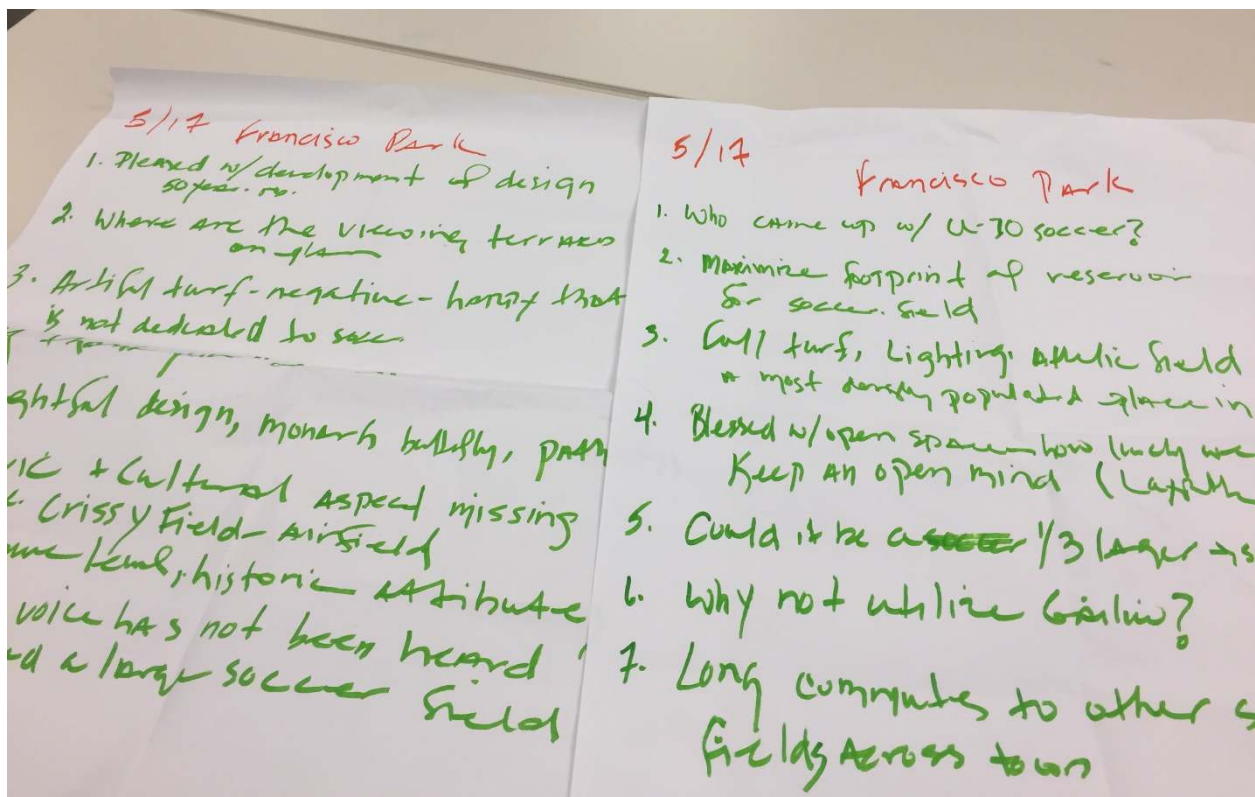 5/17 Francisco Park
1. Pleased w/development of design
50 year.
2. Where are the viewing terraces
on plan
3. Artifal turf-negative- happy that
is not dedicated to
ghtful design, monarch butterfly, path
vic + Cultural aspect missing
Crissy Field-Airfield
level, historic attribute
voice has not been heard
a large soccer field
5/17
Francisco Park
1. Who came up w/ U-10 soccer?
2. Maximize footprint of reservoir
for soccer field
3. Call turf, Lighting, athletic field
most densely populated place in
4. Blessed w/open space how lucky we
Keep an open mind
5. Could it be a 1/3 larger
6. Why not utilize
7. Long commutes to other s
fields across town